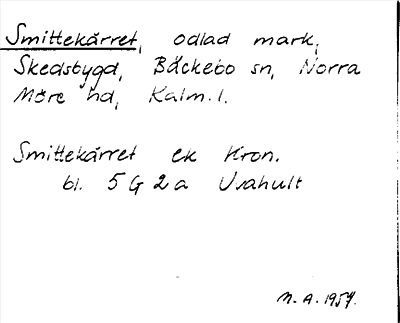 Smittekärret, odlad mark,
Skedsbygd, Bäckebo sn, Norra
Möre hd, Kalm.l.
Smittekärret ek Kron.
bl. 5 G 2 a Usahult
M.A. 1957.